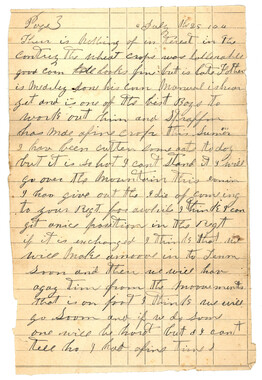 Page 3
There is nothing of in terest in the
Contry the wheat crops was tollerable
good corn looks fine but is late Father
is now his corn Manuel is hear
yet and is one of the best Boys to
work out him and
has mad a fine crop this Sumer
I have been cutten some oats to day
but it is so hot I cant stand it I will
go over the Mountain this evnin
I hav give out the idie of comeing
to your Regt for awhile I think I can
get a nice position in the Regt
if it is exchanged I think that
will make a moove in to Tenn
Soon and then we will have
a gay time from the moovments
that is on foot I think we will
go Soon and if we do Som
one will be hurt but I cant
tell ho I had a fine time